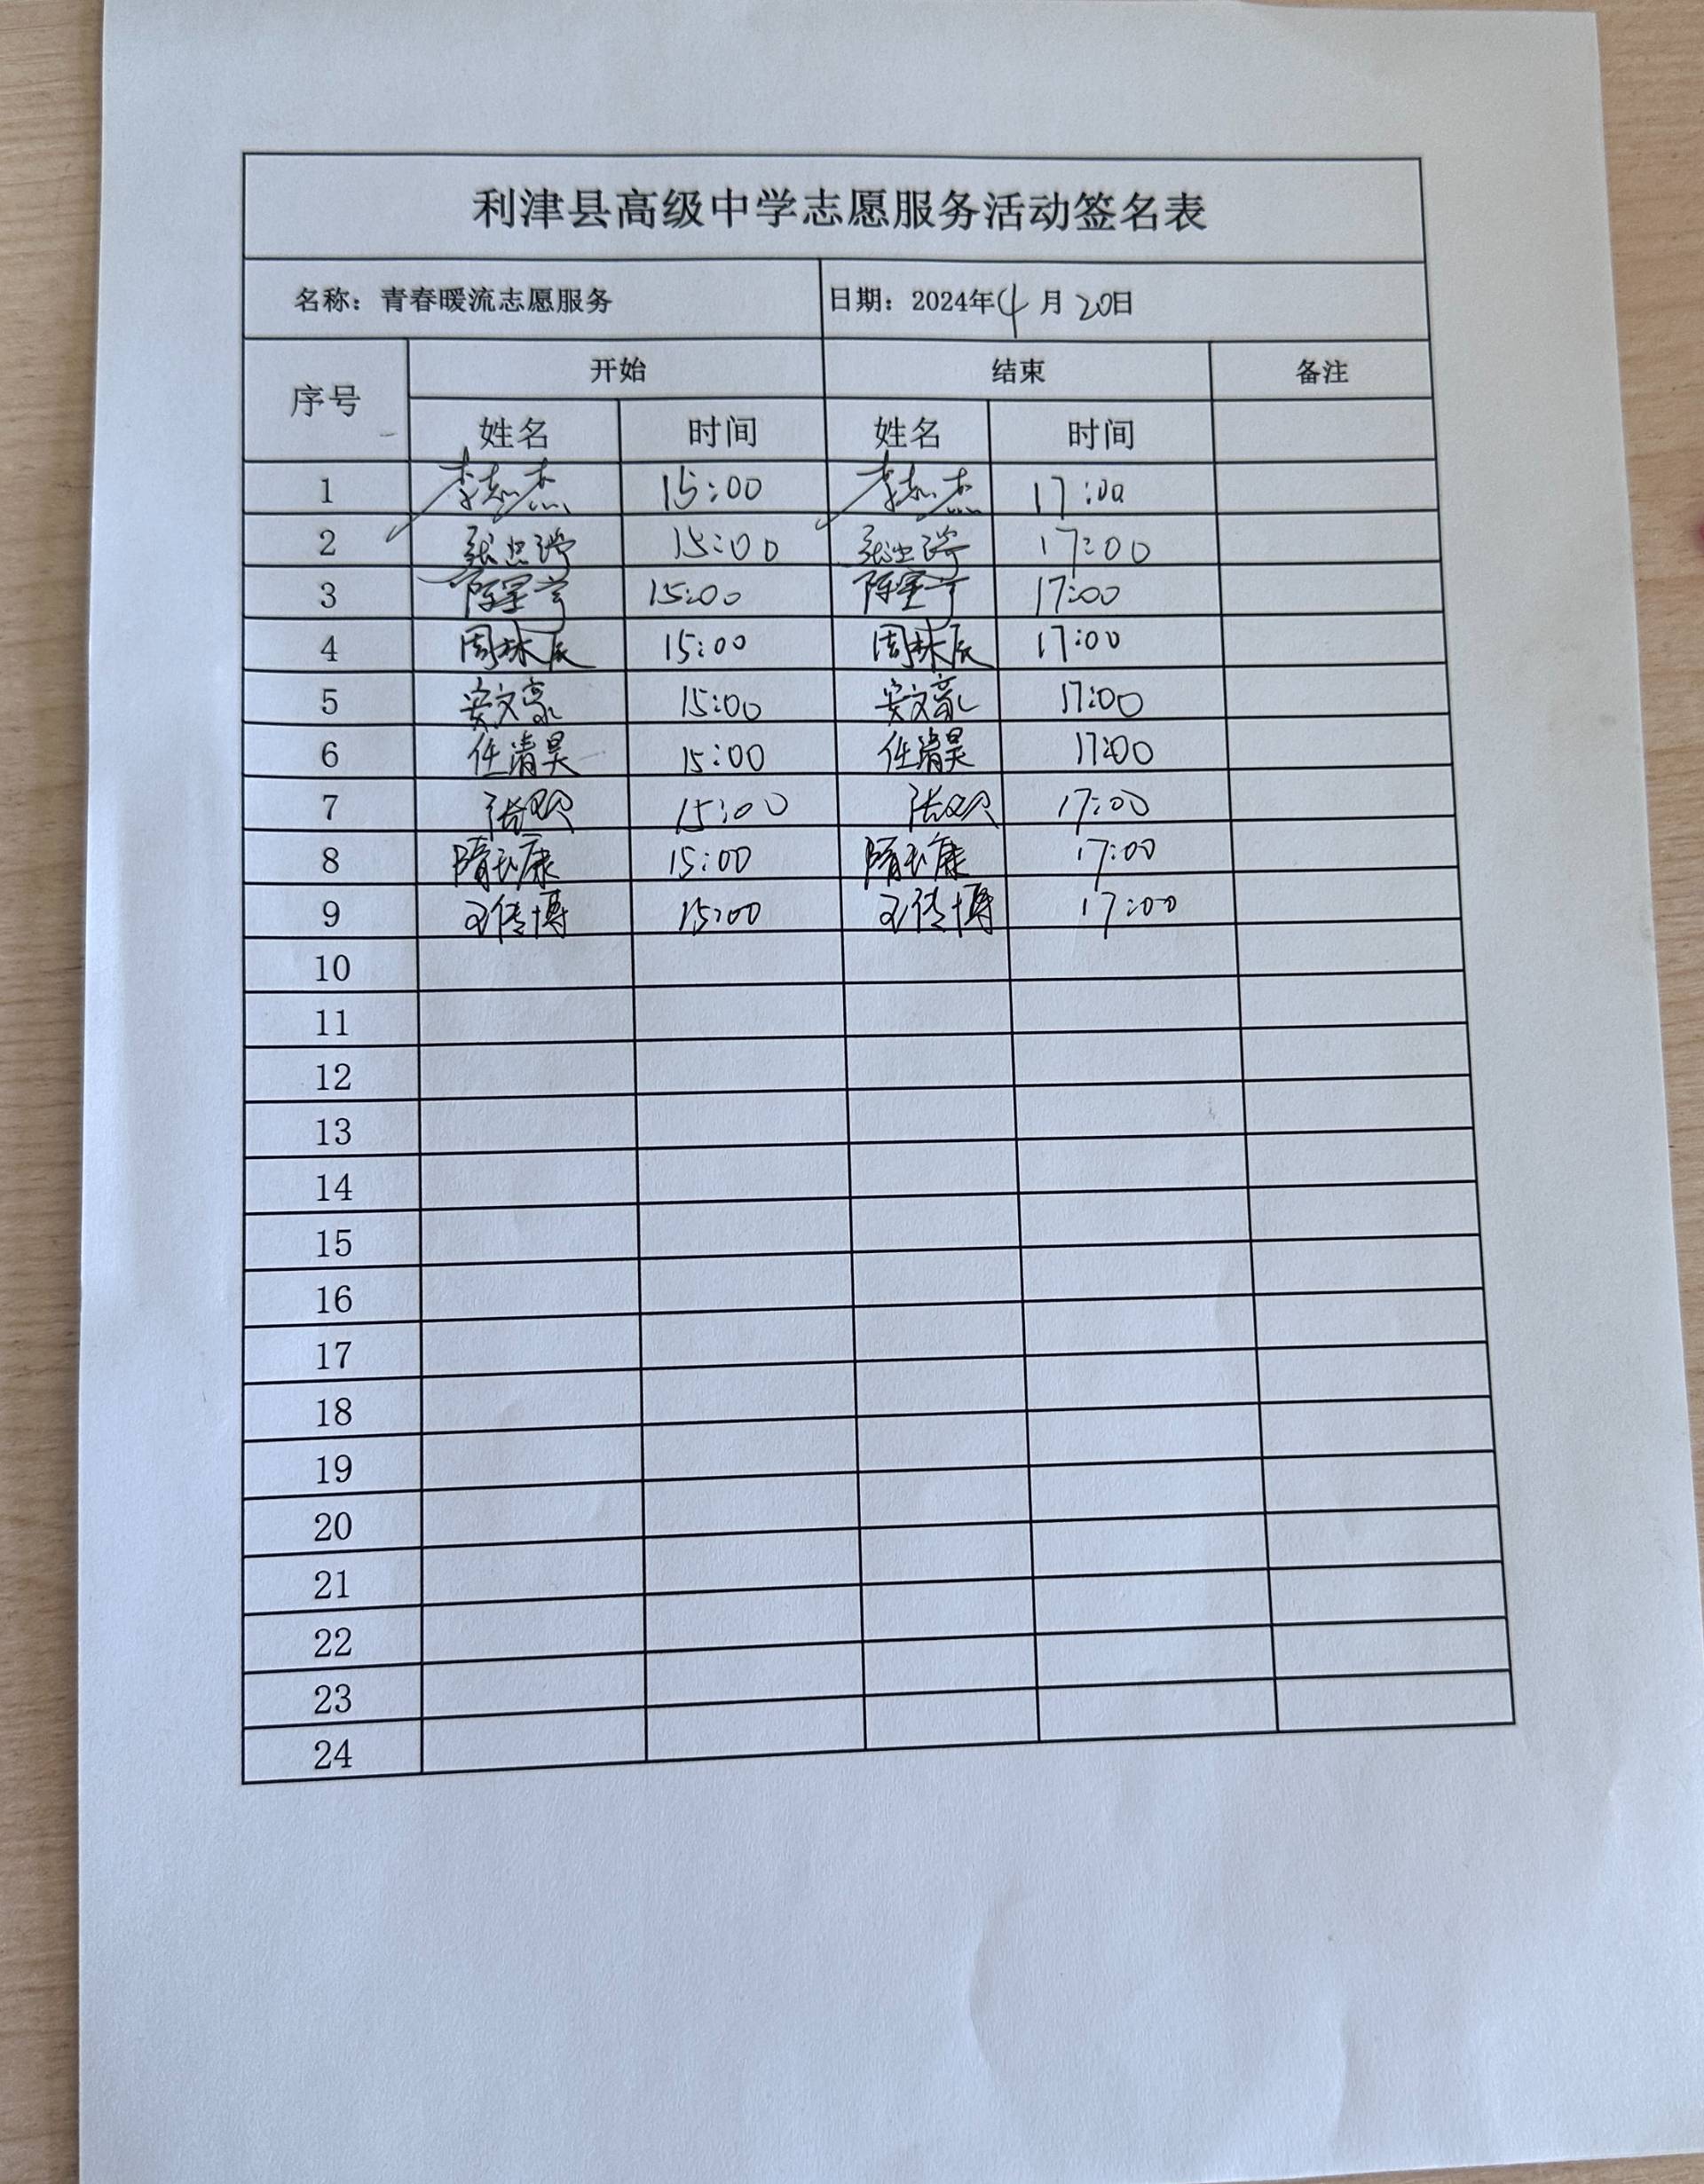 利津县高级中学志愿服务活动签名表
名称：青春暖流志愿服务 日期：2024年4月20日
序号 开始 结束 备注
姓名 时间 姓名 时间
1 李志杰 15:00 李志杰 17:00
2 15:00 17:00
3 15:00 17:00
4 周林辰 15:00 周林辰 17:00
5 安文豪 15:00 安文豪 17:00
6 任清昊 15:00 任清昊 17:00
7 15:00 17:00
8 隋玉康 15:00 隋玉康 17:00
9 王传博 15:00 王传博 17:00
10
11
12
13
14
15
16
17
18
19
20
21
22
23
24